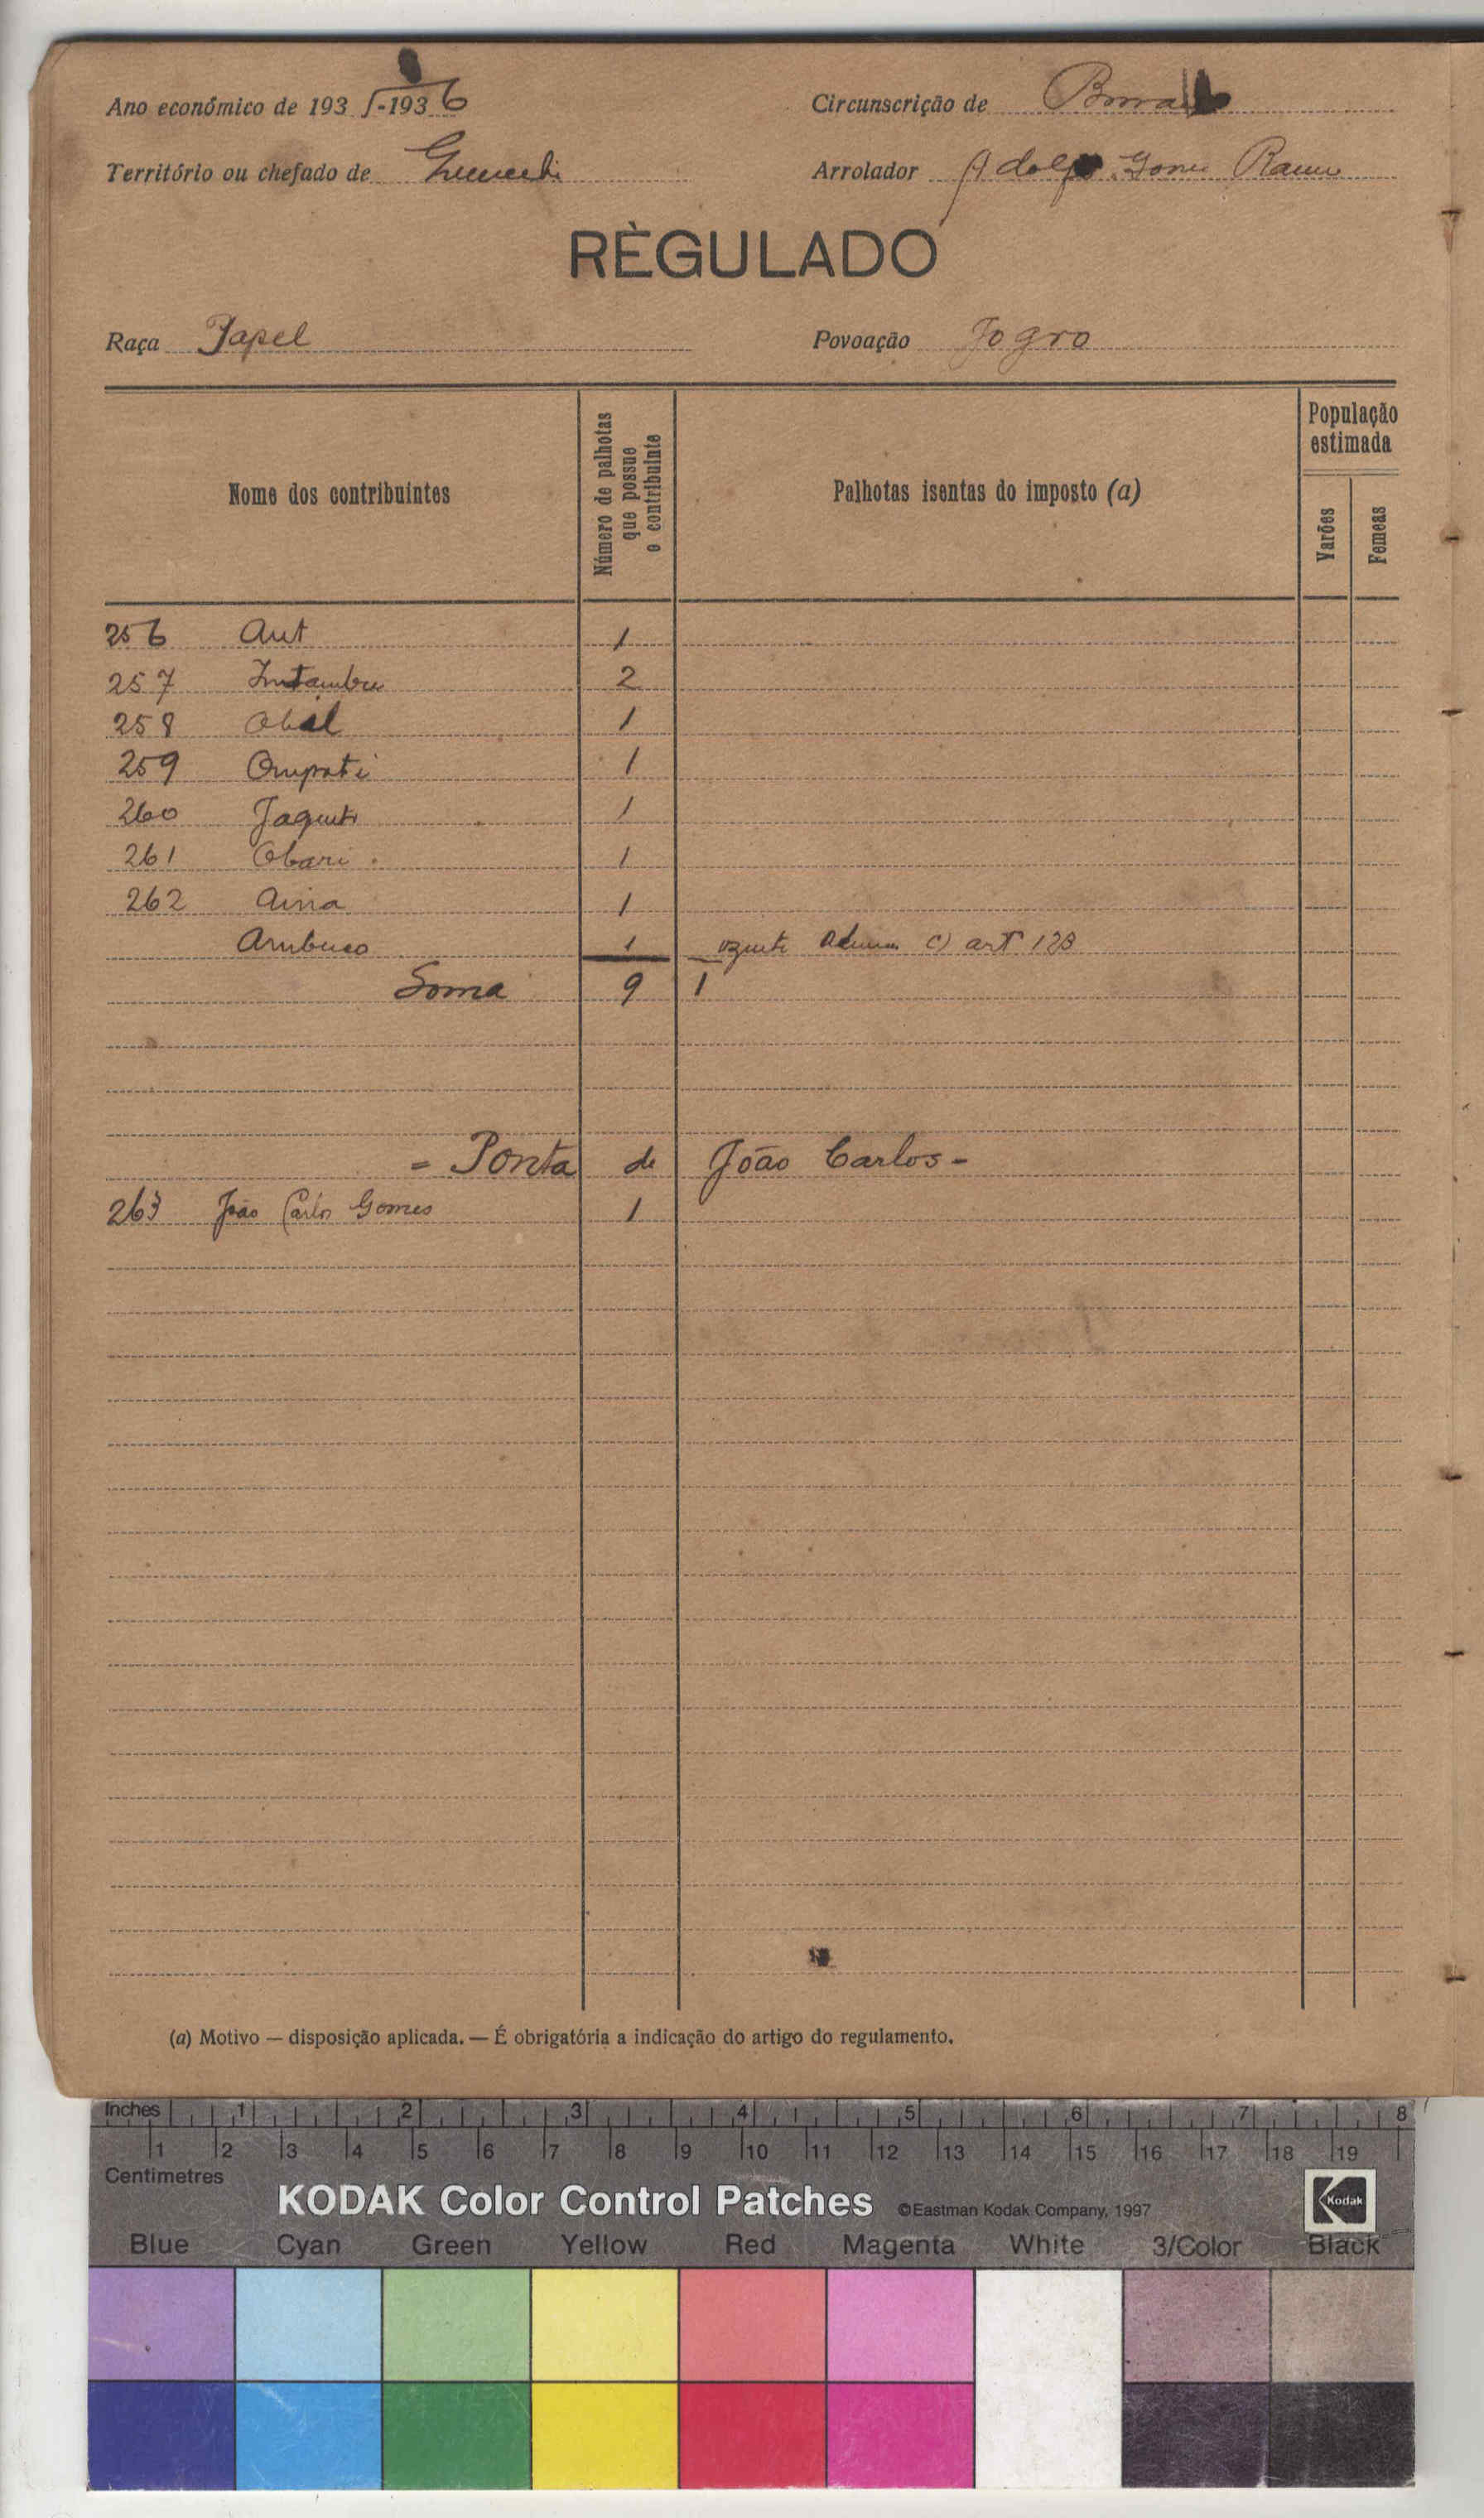 Ano económico de 1935-1936
Circunscrição de
Território ou chefado de
Arrolador Adolfo Gomes Ramos
RÈGULADO
Raça Papel
Povoação Jogro
Nome dos contribuintes
Número de palhotas que possue o contribuinte
Palhotas isentas do imposto (a)
População estimada
Varões
Femeas
256 Aut 1
257 2
258 1
259 1
260 1
261 Obari 1
262 1
1 c) artº 123
Soma 9 1
= Ponta de João Carlos =
263 João Carlos Gomes 1
(a) Motivo — disposição aplicada. — É obrigatória a indicação do artigo do regulamento.
Inches 1 2 3 4 5 6 7 8
1 2 3 4 5 6 7 8 9 10 11 12 13 14 15 16 17 18 19
Centimetres
KODAK Color Control Patches ©Eastman Kodak Company, 1997 Kodak
Blue Cyan Green Yellow Red Magenta White 3/Color Black